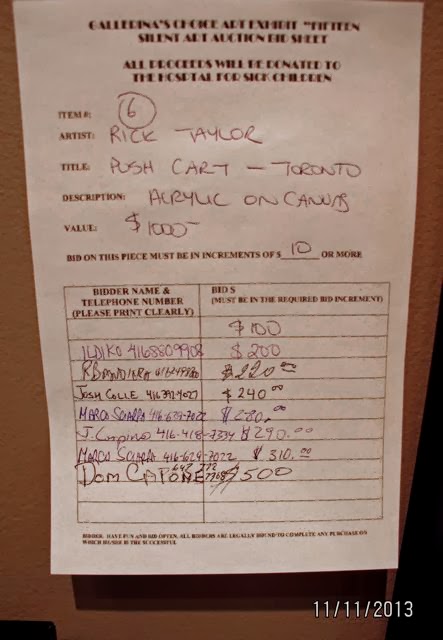 GALLERINA'S CHOICE ART EXHIBIT "FIFTEEN
SILENT ART AUCTION BID SHEET
ALL PROCEEDS WILL BE DONATED TO
THE HOSPITAL FOR SICK CHILDREN
ITEM #: 6
ARTIST: RICK TAYLOR
TITLE: PUSH CART - TORONTO
DESCRIPTION: ACRYLIC ON CANVAS
VALUE: $1000-
BID ON THIS PIECE MUST BE IN INCREMENTS OF $ 10 OR MORE
BIDDER NAME & TELEPHONE NUMBER (PLEASE PRINT CLEARLY)
BIDS (MUST BE IN THE REQUIRED BID INCREMENT)
$100
ILDIKO 4168809908 $200
$220.00
JOSH COLLE 416 $240.00
MARCO SCIARRA 416-629-7022 $280.00
J. 416-418-7334 $290.00
MARCO SCIARRA 416-629-7022 $310.00
DOM CAPONE 647 772 $500
BIDDER, HAVE FUN AND BID OFTEN. ALL BIDDERS ARE LEGALLY BOUND TO COMPLETE ANY PURCHASE ON
WHICH HE/SHE IS THE SUCCESSFUL
11/11/2013